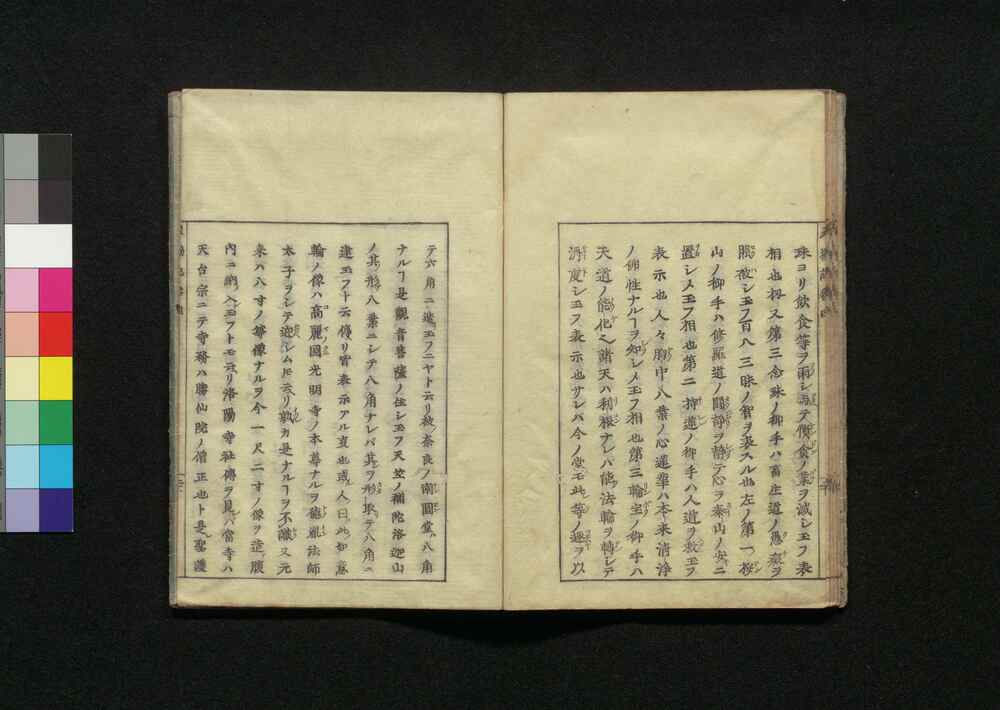 珠ヨリ飲食等ヲ雨シ玉テ慳貪ノ業ヲ滅シ玉フ表
相也扨又第三念珠ノ御手ハ畜生道ノ愚癡ヲ
照破シ玉フ百八三昧ノ智ヲ表スル也左ノ第一按
山ノ御手ハ修羅道ノ闘諍ヲ静テ心ヲ泰山ノ安ニ
置シメ玉フ相也第二持蓮ノ御手ハ人道ヲ救玉フ
表示也人々胸中八葉ノ心蓮華ハ本来清浄
ノ佛性ナルヿヲ知シメ玉フ相也第三輪宝ノ御手ハ
天道ノ能化ヘ諸天ハ利根ナレバ能法輪ヲ轉シテ
済度シ玉フ表示也サレバ今ノ堂モ此等ノ選ヲ以
テ六角ニ造玉フニヤト云リ彼奈良ノ南圓堂八角
ナルヿ是觀音菩薩ノ住シ玉フ天竺ノ補陀洛迦山
ノ其形八葉ニシテ八角ナレバ其ヲ形取テ八角ニ
建玉フト云傳リ皆表示アル㕝也或人曰此如意
輪ノ像ハ高麗國光明寺ノ本尊ナルヲ徳胤法師
太子ヲシテ迎シムト云リ孰カ是ナルヿヲ不識又元
来ハ八寸ノ尊像ナルヲ今一尺二寸ノ像ヲ造腹
内ニ納入玉フトモ云リ洛陽寺社傳ヲ見バ當寺ハ
天台宗ニテ寺務ハ勝仙院ノ僧正也ト是聖護